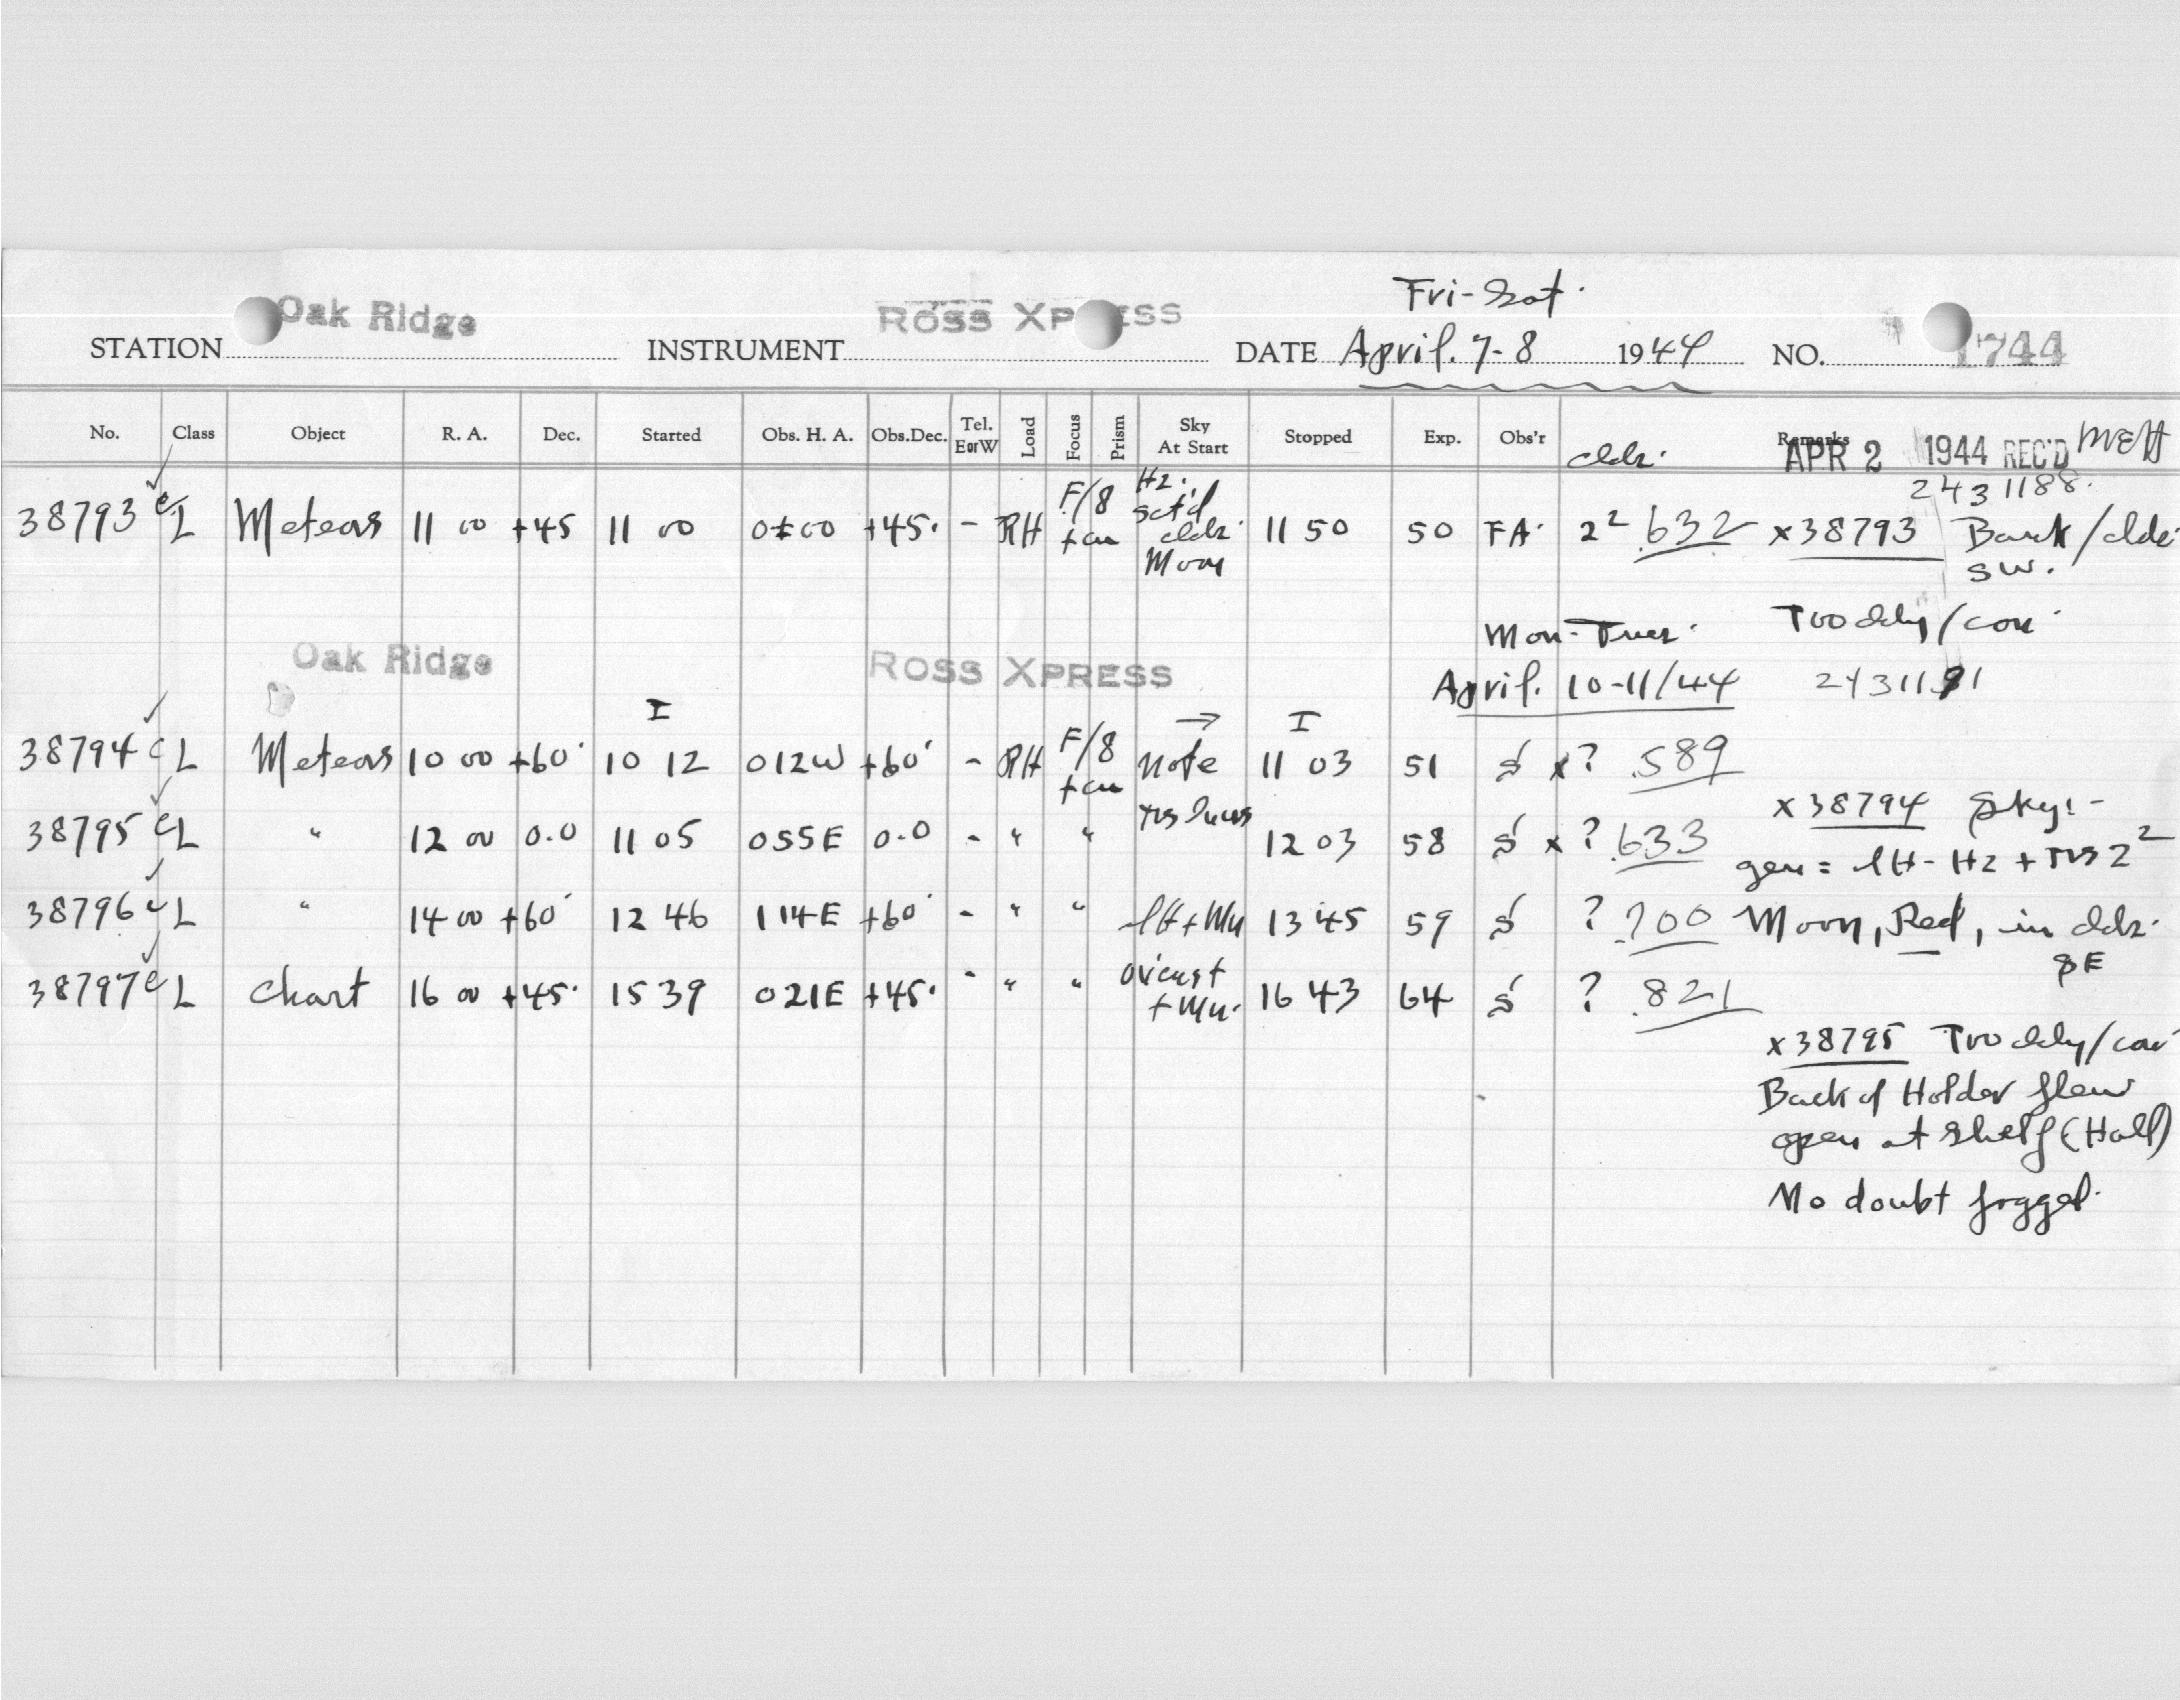 Fri-Sat.
STATION Oak Ridge INSTRUMENT ROSS XPRESS DATE April. 7-8 1944 NO. 1744
No. Class Object R. A. Dec. Started Obs. H. A. Obs.Dec. Tel. E or W Load Focus Prism Sky At Start Stopped Exp. Obs'r cldz. Remarks APR 2 1944 REC'D
2431188.
38793 c L Meteors 11 00 +45 11 00 0±00 +45. - RH F/8 Hz. sct'd cldz. Moon 11 50 50 FA. 2² .632 x38793 Bank/cldz. SW.
Mon-Tues.
Oak Ridge ROSS XPRESS April. 10-11/44 2431191
I → I
38794 c L Meteors 10 00 +60 10 12 012W +60 - RH F/8 note 11 03 51 S x? .589
38795 c L " 12 00 0.0 11 05 055E 0.0 - " " 12 03 58 S x? .633 x38794 Sky:-
gen= lH- Hz + 2²
38796 c L " 14 00 +60 12 46 114E +60 - " " 13 45 59 S ? .700 Moon, Red, in cldz. SE
38797 c L Chart 16 00 +45. 15 39 021E +45. - " " ov'cast 16 43 64 S ? .821
x38795
Back of Holder flew
open at shelf (Hall)
No doubt fogged.